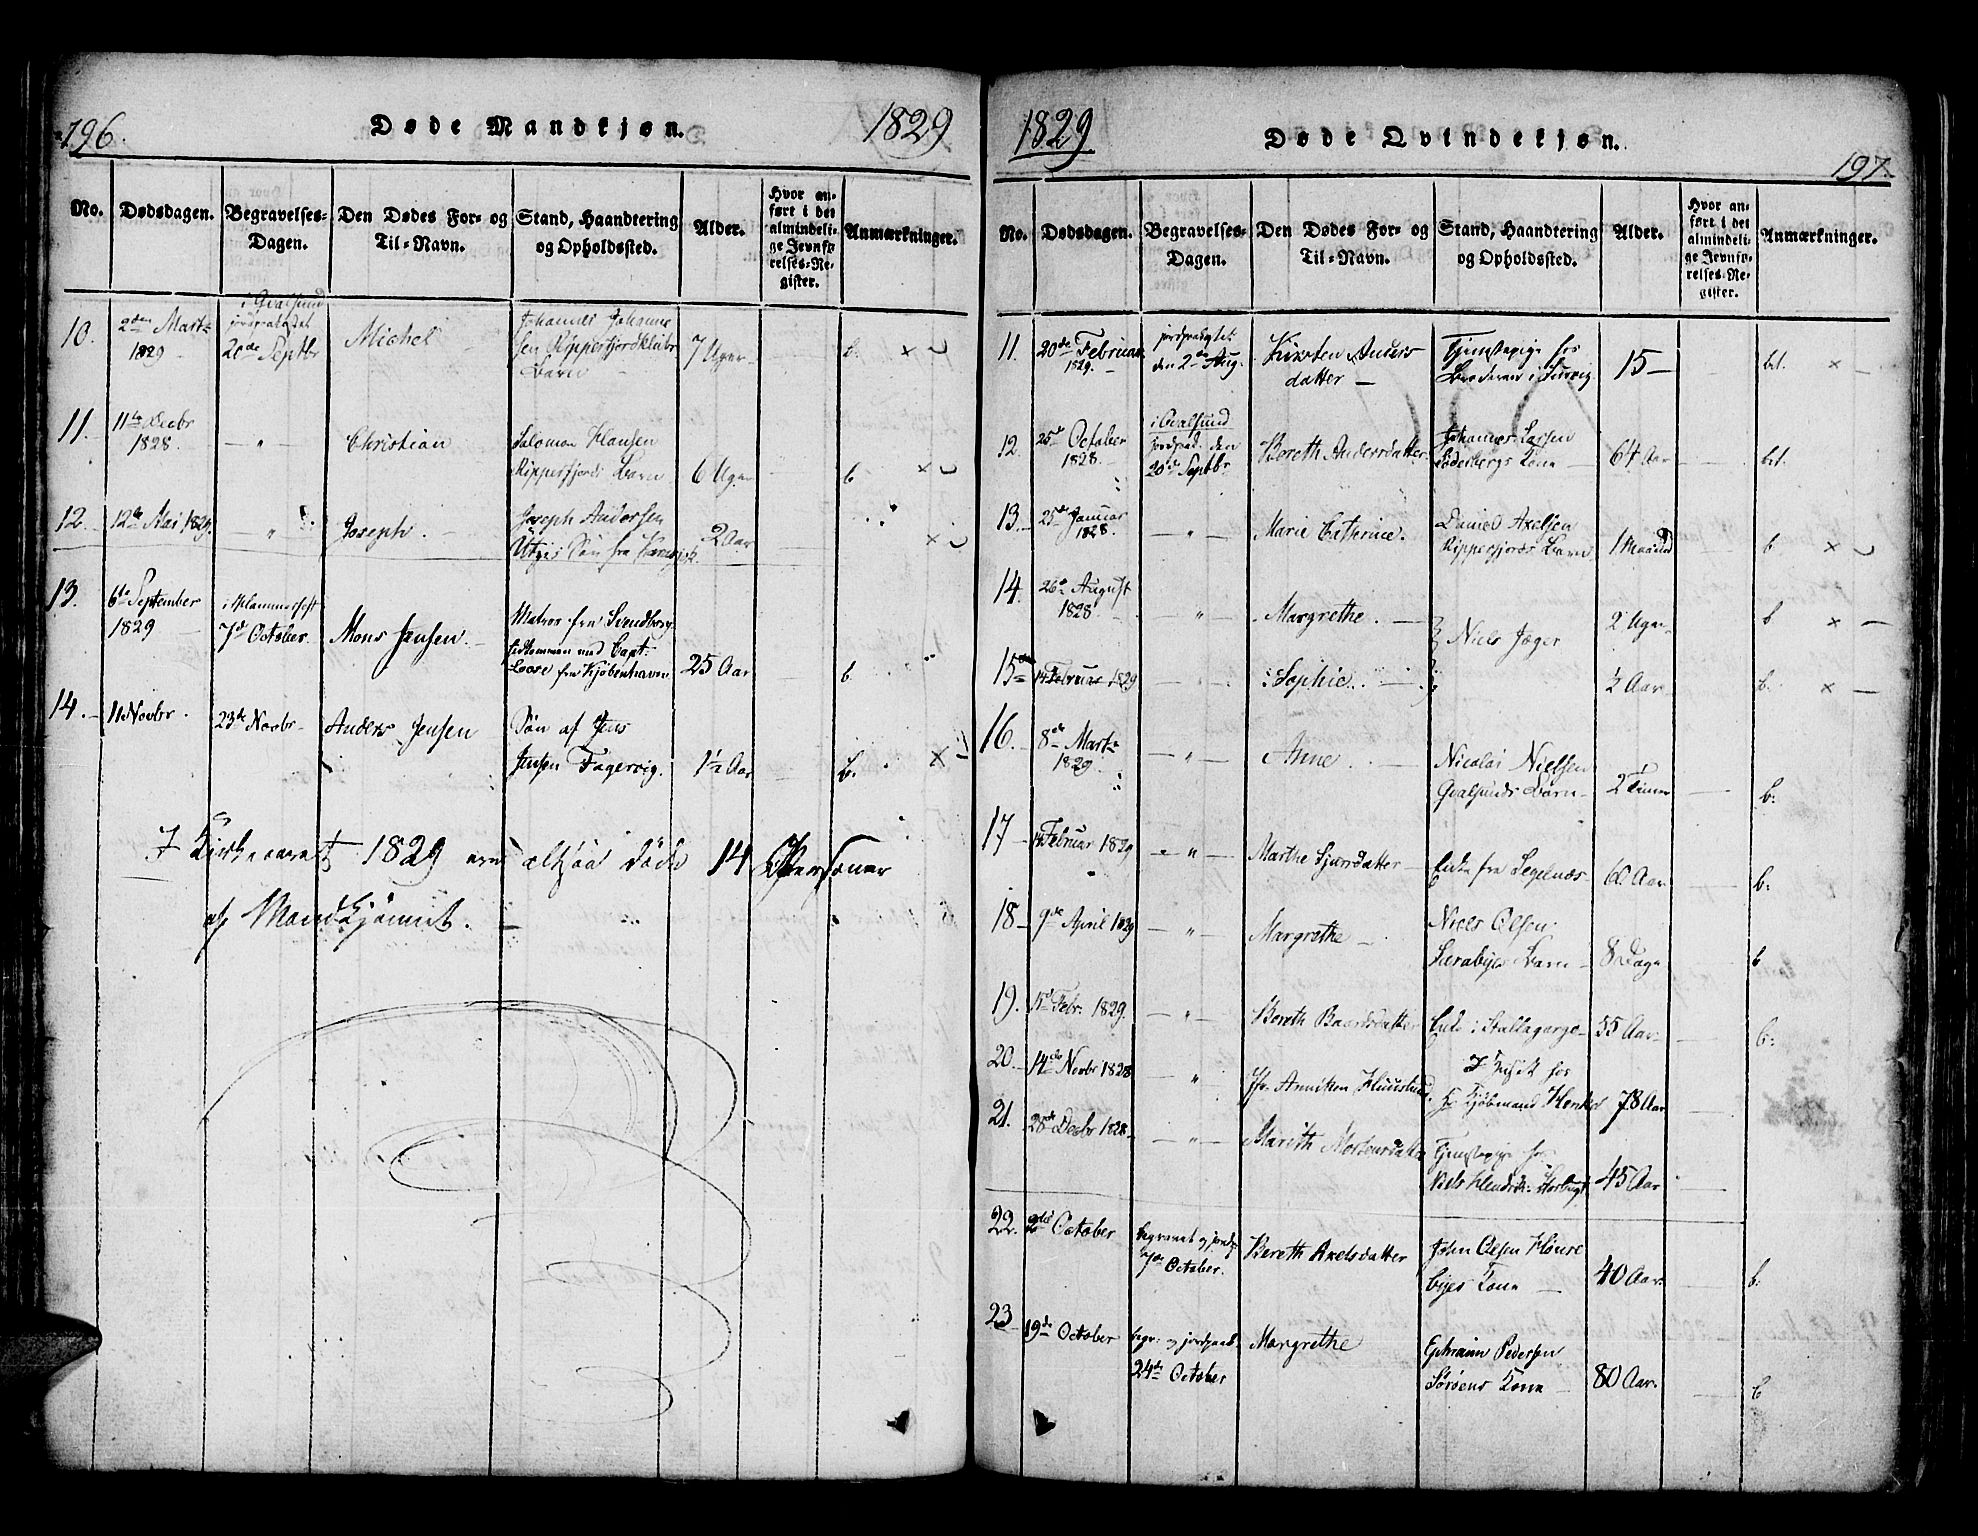 196.
Døde Mandkjøn.
1829
No.
Dødsdagen.
Begravelses-
Dagen.
Den Dødes For- og
Til-Navn.
Stand, Haandtering
og Opholdssted.
Alder.
Hvor an-
ført i det
almindeli-
ge Jevnfø-
relses-Re-
gister.
Anmærkninger.
10.
2den Marts
1829
i Qvalsund
jordpaakastet
20de Septbr
Michel
Johannes Johanne-
sen Ripperfjord
Barn
7 Uger
b. ×
11.
11te Decbr
1828.
"
Christian
Salomon Hansen
Ripperfjords Barn
6 Uger
b ×
12.
12te Mai 1829.
"
Joseph
Joseph Andersen
Søn fra
2 Aar
×
13.
6te September
1829
i Hammerfest
7de October.
Mons Jensen
Matros fra Svendborg
hidkommen med Capt:
fra Kjøbenhavn
25 Aar
b.
14.
11 Novbr.
23de Novbr
Anders Jensen
Søn af Jens
Jensen Fagervig.
1½ Aar
b. ×
I Kirkeaaret 1829 ere altsaa døde 14 Personer
af Mandkjønnet.
1829
Døde Qvindekjøn.
197.
No.
Dødsdagen.
Begravelses-
Dagen.
Den Dødes For- og
Til-Navn.
Stand, Haandtering
og Opholdssted.
Alder.
Hvor an-
ført i det
almindeli-
ge Jevnfø-
relses-Re-
gister.
Anmærkninger.
11.
20de Februar
1829.
den 2de Aug.
Kirsten Anders
datter
Tjenstepige hos
15
bet. ×
12.
25de October
1828.
i Qvalsund
jordpaak. den
20de Septbr.
Bereth Andersdatter
Johannes Larsen
Kone
64 Aar
bet.
13.
25de Januar
1828.
"
Marie Cathrine.
Daniel Axelsen
Ripperfjords Barn
1 Maaned
b ×
14.
26de August
1828
"
Margrethe.
Niels Jæger
2 Uger
b ×
15
14 Februar 1829
"
Sophie.
½ Aar
b. ×
16.
8de Marts
1829
"
Anne
Nicolai Nielsen
Qvalsunds Barn
2 Timer
b:
17
14 Februar 1829
"
Marthe Sjursdatter
Enke fra Segelnæs
60 Aar
b:
18
9de April 1829
"
Margrethe
Niels Olsen
Barn
8 Dage
b
19.
15de Febr. 1829.
"
Bereth Baardsdatter
Enke i
55 Aar
b:
20
14de Novbr 1828
"
Anniken
hos
Kjøbmand
78 Aar
21.
28de Decbr 1828
"
Marith Mortensdatter
Tjenstepige hos
Niels Hendrik
45 Aar
22.
2de October
begravet og jordp.
7de October.
Bereth Axelsdatter
John Olsen
Kone
40 Aar.
b.
23
19de October
begr: og jordpaak.
24de October
Margrethe
Ephraim Pedersen
Sørøens Kone
80 Aar.
b